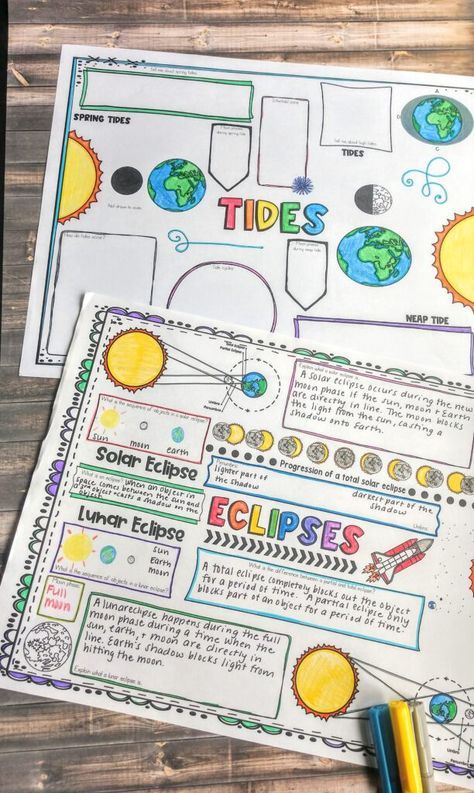 Tell me about spring tides.
SPRING TIDES
Moon phase during spring tide
Intertidal zone
Tell me about high tides.
TIDES
A
C
Not drawn to scale.
TIDES
How do tides occur?
Tidal cycles
Moon phase during neap tide
NEAP TIDE
Total Eclipse
Partial Eclipse
Umbra
Penumbra
Explain what a solar eclipse is.
A solar eclipse occurs during the new
moon phase if the sun, moon + Earth
are directly in line. The moon blocks
the light from the sun, casting a
shadow onto Earth.
What is the sequence of objects in a solar eclipse?
sun
moon
earth
Solar Eclipse
Progression of a total solar eclipse
Penumbra:
lighter part of
the shadow
darkest part of the
shadow
Umbra:
What is an eclipse?
When an object in
space comes between the sun and
a 2nd object + casts a shadow on the
object.
ECLIPSES
Lunar Eclipse
sun
Earth
moon
What is the sequence of objects in a lunar eclipse?
What is the difference between a partial and total eclipse?
A total eclipse completely blocks out the object
for a period of time. A partial eclipse only
blocks part of an object for a period of time.
Moon phase:
Full
moon
A lunar eclipse happens during the full
moon phase during a time when the
sun, earth, + moon are directly in
line. Earth's shadow blocks light from
hitting the moon.
Explain what a lunar eclipse is.
Umbra
Penumbra